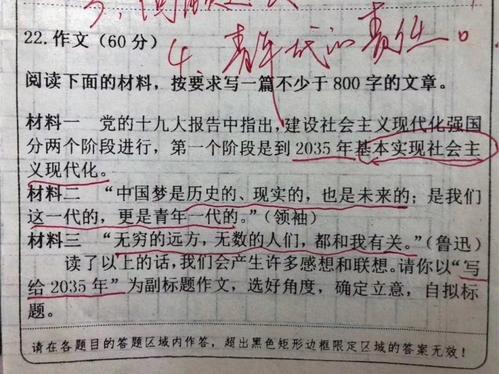 22.作文(60分)
4、青年一代的责任。
阅读下面的材料，按要求写一篇不少于800字的文章。
材料一 党的十九大报告中指出，建设社会主义现代化强国
分两个阶段进行，第一个阶段是到2035年基本实现社会主
义现代化。
材料二 “中国梦是历史的、现实的，也是未来的；是我们
这一代的，更是青年一代的。”(领袖)
材料三 “无穷的远方，无数的人们，都和我有关。”(鲁迅)
读了以上的话，我们会产生许多感想和联想。请你以“写
给2035年”为副标题作文，选好角度，确定立意，自拟标
题。
请在各题目的答题区域内作答，超出黑色矩形边框限定区域的答案无效！